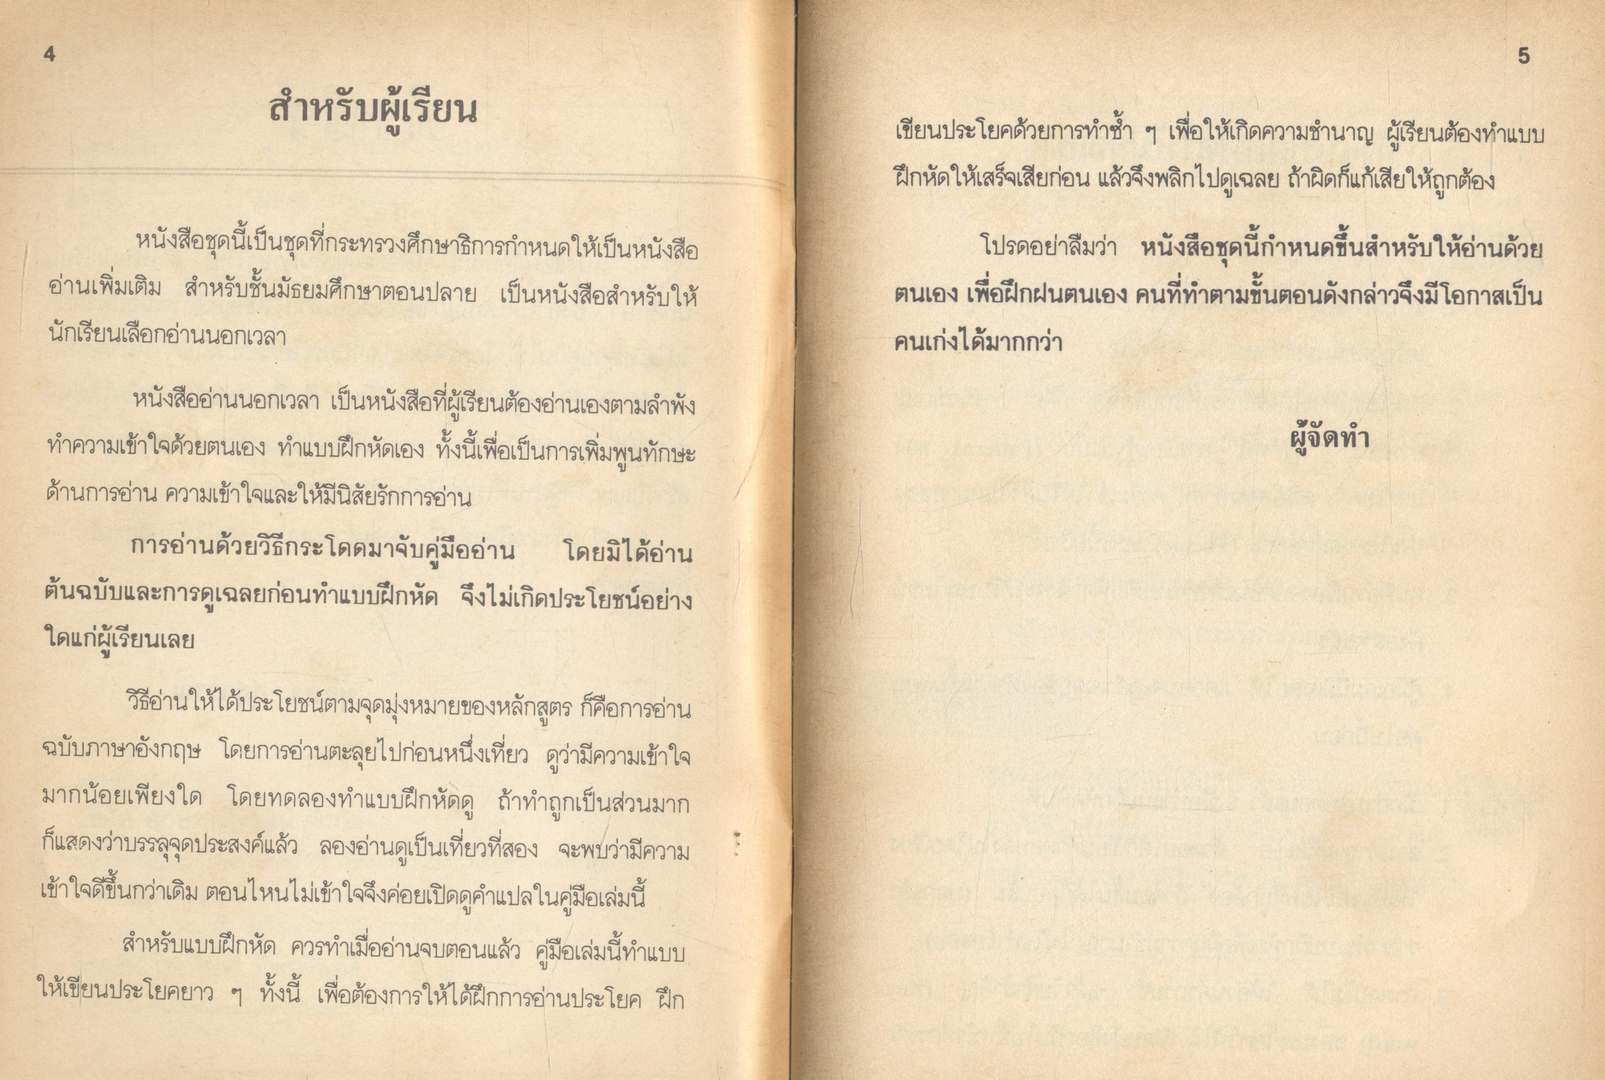 4
สำหรับผู้เรียน
หนังสือชุดนี้เป็นชุดที่กระทรวงศึกษาธิการกำหนดให้เป็นหนังสือ
อ่านเพิ่มเติม สำหรับชั้นมัธยมศึกษาตอนปลาย เป็นหนังสือสำหรับให้
นักเรียนเลือกอ่านนอกเวลา
หนังสืออ่านนอกเวลา เป็นหนังสือที่ผู้เรียนต้องอ่านเองตามลำพัง
ทำความเข้าใจด้วยตนเอง ทำแบบฝึกหัดเอง ทั้งนี้เพื่อเป็นการเพิ่มพูนทักษะ
ด้านการอ่าน ความเข้าใจและให้มีนิสัยรักการอ่าน
การอ่านด้วยวิธีกระโดดมาจับคู่มืออ่าน โดยมิได้อ่าน
ต้นฉบับและการดูเฉลยก่อนทำแบบฝึกหัด จึงไม่เกิดประโยชน์อย่าง
ใดแก่ผู้เรียนเลย
วิธีอ่านให้ได้ประโยชน์ตามจุดมุ่งหมายของหลักสูตร ก็คือการอ่าน
ฉบับภาษาอังกฤษ โดยการอ่านตะลุยไปก่อนหนึ่งเที่ยว ดูว่ามีความเข้าใจ
มากน้อยเพียงใด โดยทดลองทำแบบฝึกหัดดู ถ้าทำถูกเป็นส่วนมาก
ก็แสดงว่าบรรลุจุดประสงค์แล้ว ลองอ่านดูเป็นเที่ยวที่สอง จะพบว่ามีความ
เข้าใจดีขึ้นกว่าเดิม ตอนไหนไม่เข้าใจจึงค่อยเปิดดูคำแปลในคู่มือเล่มนี้
สำหรับแบบฝึกหัด ควรทำเมื่ออ่านจบตอนแล้ว คู่มือเล่มนี้ทำแบบ
ให้เขียนประโยคยาว ๆ ทั้งนี้ เพื่อต้องการให้ได้ฝึกการอ่านประโยค ฝึก
5
เขียนประโยคด้วยการทำซ้ำ ๆ เพื่อให้เกิดความชำนาญ ผู้เรียนต้องทำแบบ
ฝึกหัดให้เสร็จเสียก่อน แล้วจึงพลิกไปดูเฉลย ถ้าผิดก็แก้เสียให้ถูกต้อง
โปรดอย่าลืมว่า หนังสือชุดนี้กำหนดขึ้นสำหรับให้อ่านด้วย
ตนเอง เพื่อฝึกฝนตนเอง คนที่ทำตามขั้นตอนดังกล่าวจึงมีโอกาสเป็น
คนเก่งได้มากกว่า
ผู้จัดทำ